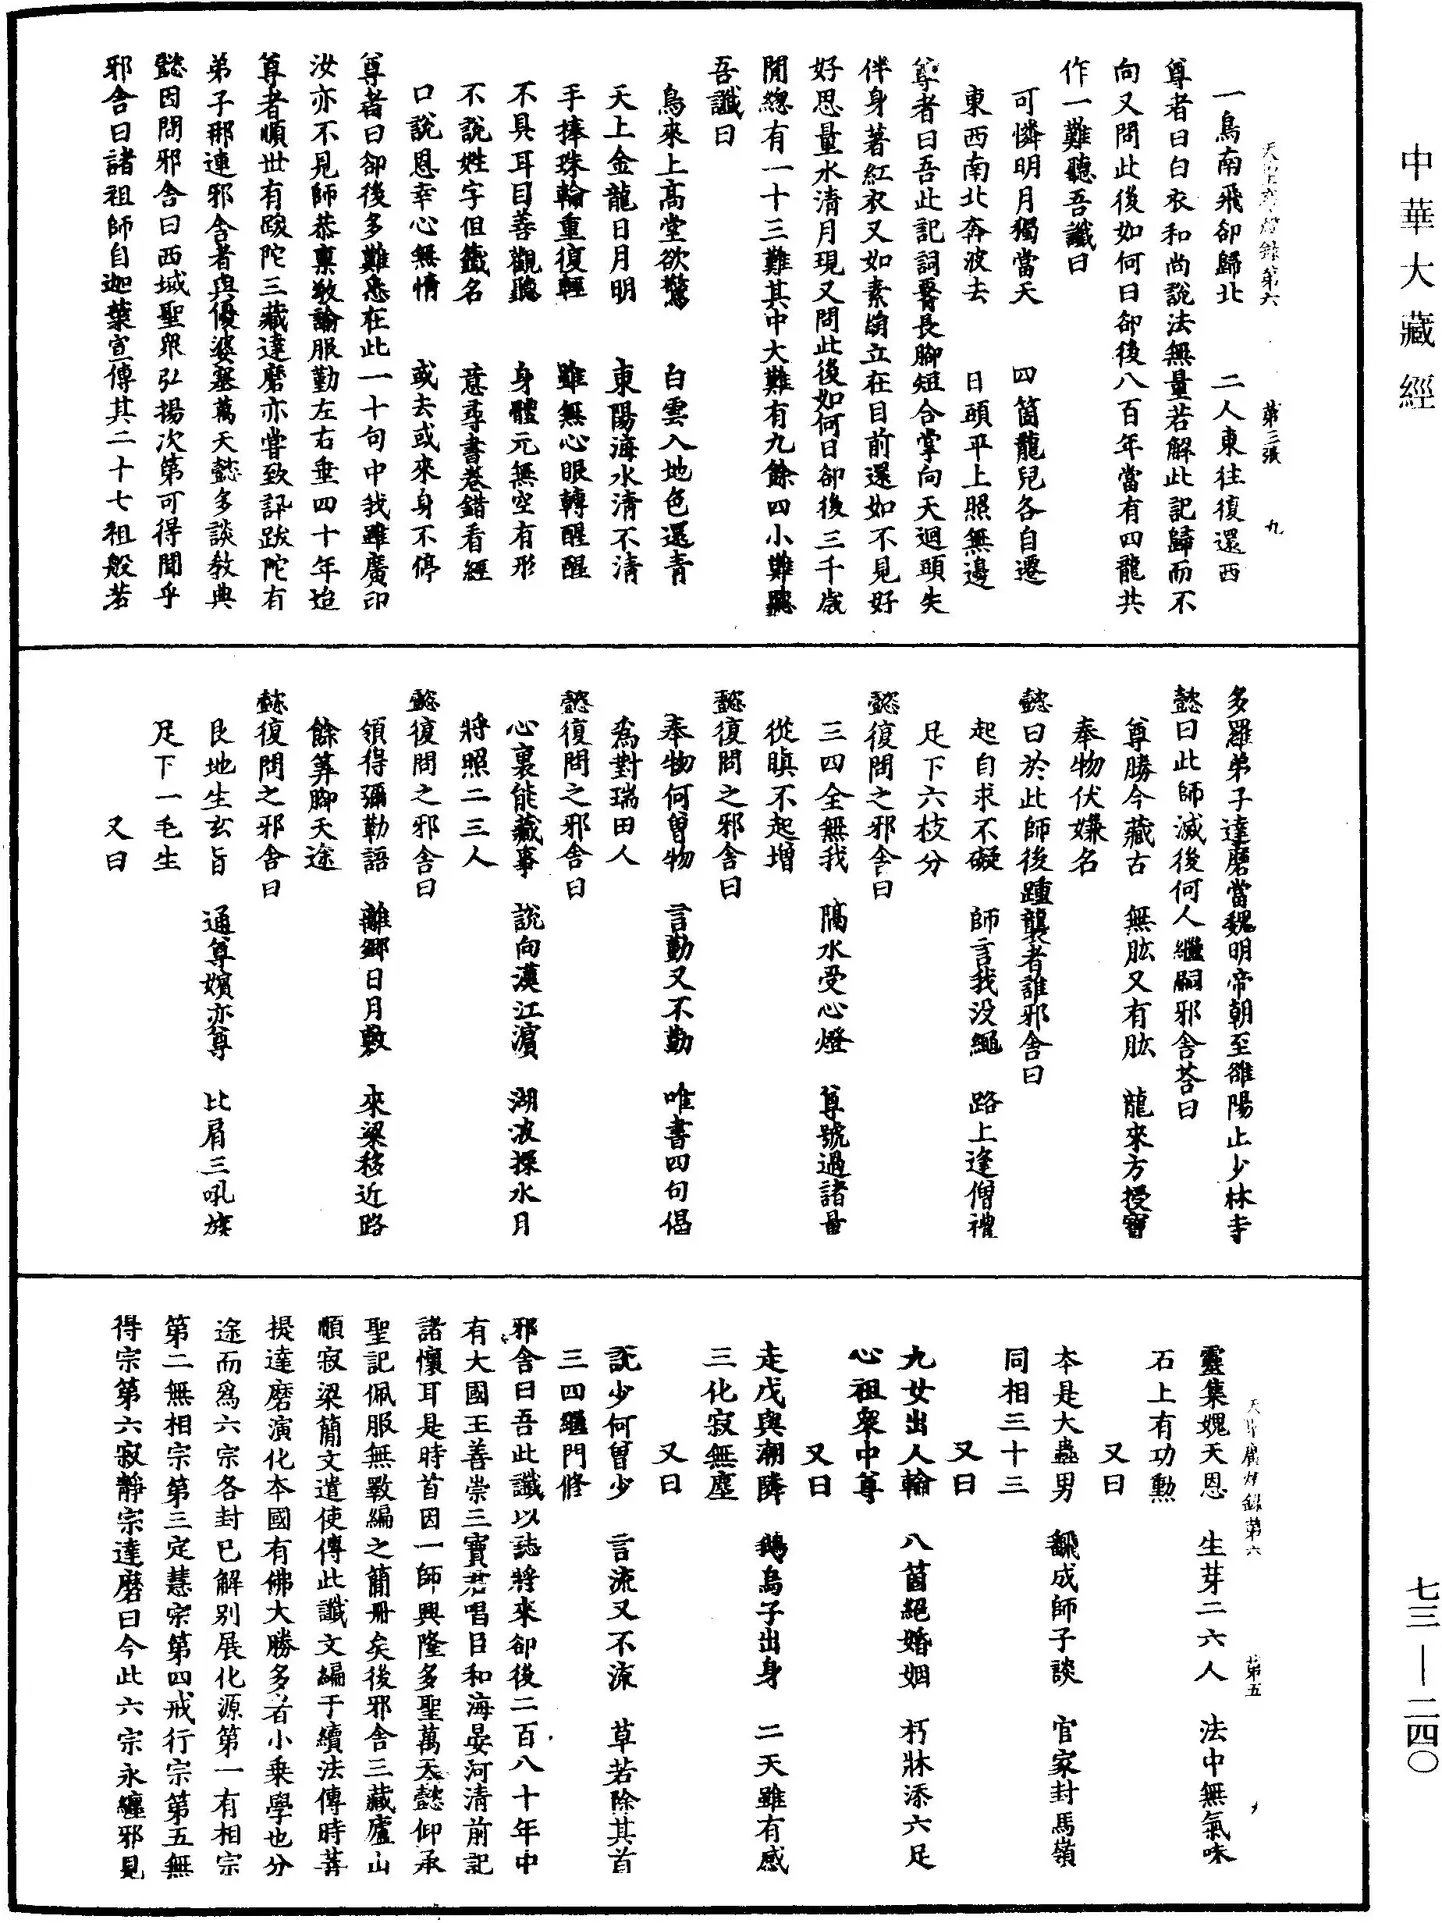 中華大藏經
天聖廣燈錄第六　第三張　九
一鳥南飛卻歸北　二人東往復還西
尊者曰白衣和尚說法無量若解此記歸而不
向又問此後如何曰卻後八百年當有四龍共
作一難聽吾讖曰
可憐明月獨當天　四箇龍兒各自遷
東西南北奔波去　日頭平上照無邊
尊者曰吾此記詞脣長腳短合掌向天迴頭失
伴身著紅衣又如素絹立在目前還如不見好
好思量水清月現又問此後如何曰卻後三千歲
間總有一十三難其中大難有九餘四小難聽
吾讖曰
鳥來上高堂欲驚　白雲入地色還青
天上金龍日月明　東陽海水清不清
手捧珠輪重復輕　雖無心眼轉醒醒
不具耳目善觀聽　身體元無空有形
不說姓字但籤名　意尋書卷錯看經
口說恩幸心無情　或去或來身不停
尊者曰卻後多難悉在此一十句中我雖廣印
汝亦不見師恭稟教論服勤左右垂四十年迨
尊者順世有跋陀三藏達磨亦嘗致訊跋陀有
弟子那連邪舍者與優婆塞萬天懿多談教典
懿因問邪舍曰西域聖眾弘揚次第可得聞乎
邪舍曰諸祖師自迦葉宣傳其二十七祖般若
多羅弟子達磨當魏明帝朝至雒陽止少林寺
懿曰此師滅後何人繼嗣邪舍荅曰
尊勝今藏古　無肱又有肱　龍來方授寶
奉物伏嫌名
懿曰於此師後踵襲者誰邪舍曰
起自求不礙　師言我没繩　路上逢僧禮
足下六枝分
懿復問之邪舍曰
三四全無我　隔水受心燈　尊號過諸量
從瞋不起增
懿復問之邪舍曰
奉物何曾物　言勤又不勤　唯書四句偈
為對瑞田人
懿復問之邪舍曰
心裏能藏事　說向漢江濵　湖波探水月
將照二三人
懿復問之邪舍曰
領得彌勒語　離鄉日月敷　來梁移近路
餘筭腳天途
懿復問之邪舍曰
艮地生玄旨　通尊嬪亦尊　比肩三吼族
足下一毛生
又曰
天聖廣燈錄第六　第五
靈集媿天恩　生芽二六人　法中無氣味
石上有功勲
又曰
本是大蟲男　飜成師子談　官家封馬嶺
同相三十三
又曰
九女出人輪　八箇絕婚姻　朽牀添六足
心祖眾中尊
又曰
走戊與潮隣　鵝烏子出身　二天雖有感
三化寂無塵
又曰
說少何曾少　言流又不流　草若除其首
三四繼門修
邪舍曰吾此讖以誌將來卻後二百八十年中
有大國王善崇三寶君唱日和海晏河清前記
諸懷耳是時首因一師興隆多聖萬天懿仰承
聖記佩服無斁編之簡冊矣後邪舍三藏廬山
順寂梁簡文遣使傳此讖文編于續法傳時菩
提達磨演化本國有佛大勝多者小乗學也分
途而爲六宗各封已解別展化源第一有相宗
第二無相宗第三定慧宗第四戒行宗第五無
得宗第六寂靜宗達磨曰今此六宗永纏邪見
七三—二四〇